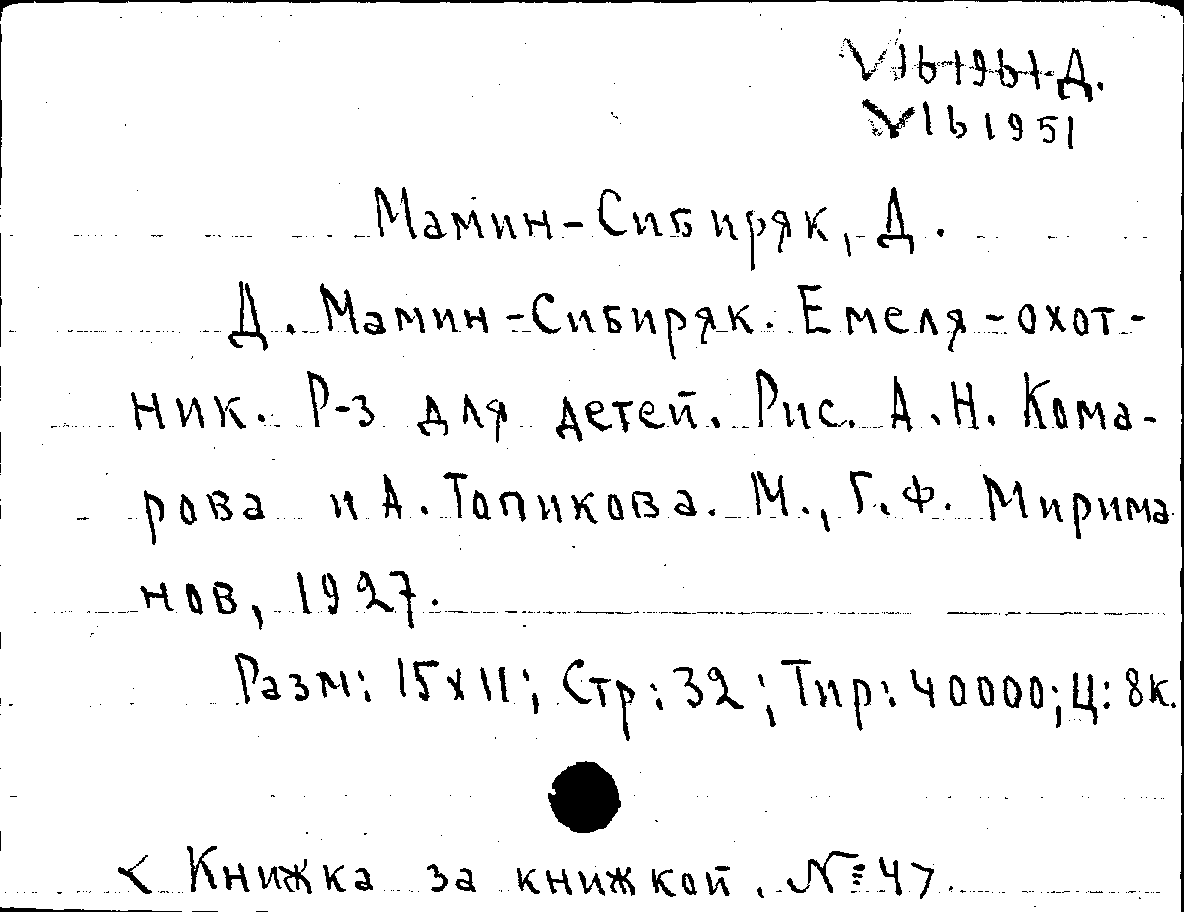 V 1b 1961 Д.
V 1b 1951
Мамин-Сибиряк, Д.
Д. Мамин-Сибиряк. Емеля-охот-
ник. Р-з для детей. Рис. А.Н. Кома-
рова и А. Топикова. М., Г.Ф. Мирима
нов, 1927.
Разм: 15x11; Стр: 32; Тир: 40000; Ц: 8к.
< Книжка за книжкой. № 47.